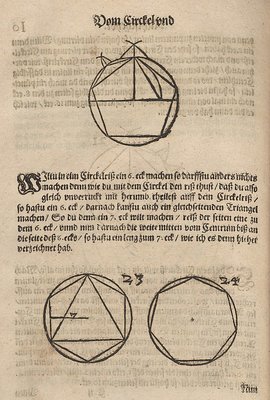 Vom Circkel vnd
WIltu in ein Circkelriß ein 6. eck machen so darffstu anders nichts
machen denn wie du mit dem Circkel den riß thust / daß du also
gleich vnuerruckt mit herumb theilest auff dem Circkelriß /
so hastu ein 6. eck / darnach kanstu auch ein gleichseitenden Triangel
machen / So du denn ein 7. eck wilt machen / reiß der seiten eine zu
dem 6. eck / vnnd nim darnach die weite mitten vom Centrum biß an
die seite deß 6. ecks / so hastu ein leng zum 7. eck / wie ich es denn hieher
verzeichnet hab.
23
24
7
Nim